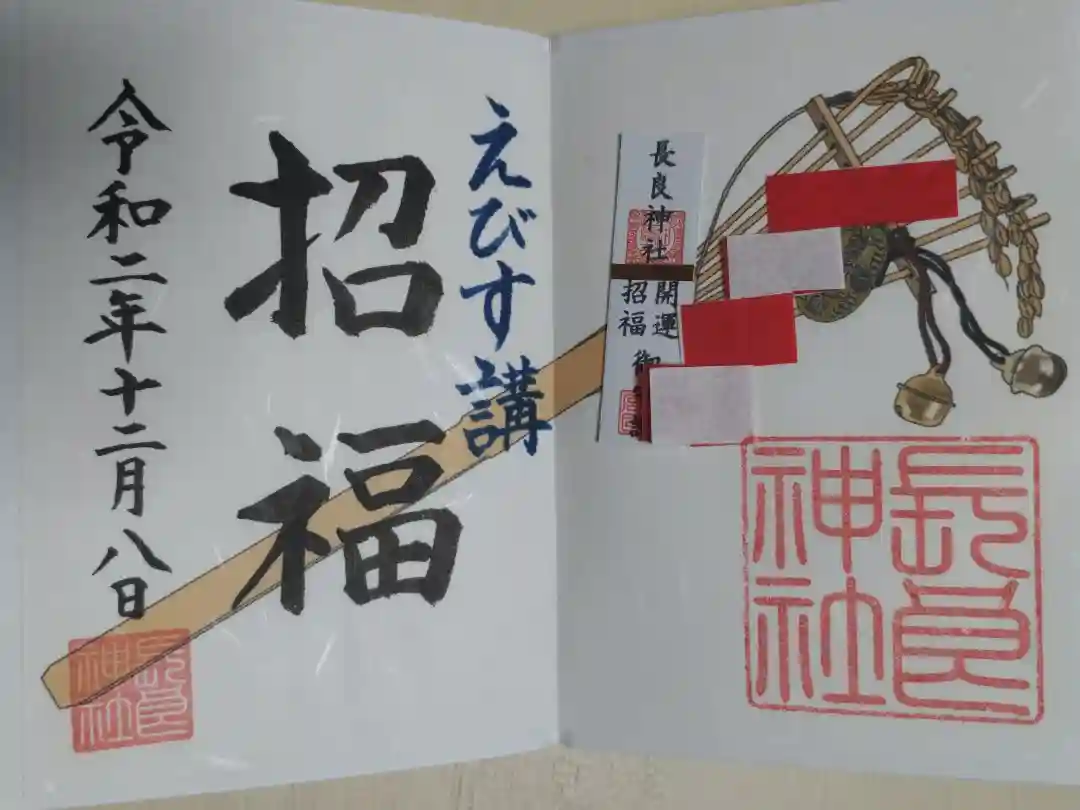 長良神社
開運
招福
御
長良
神社
えびす講
招福
令和二年十二月八日
長良
神社